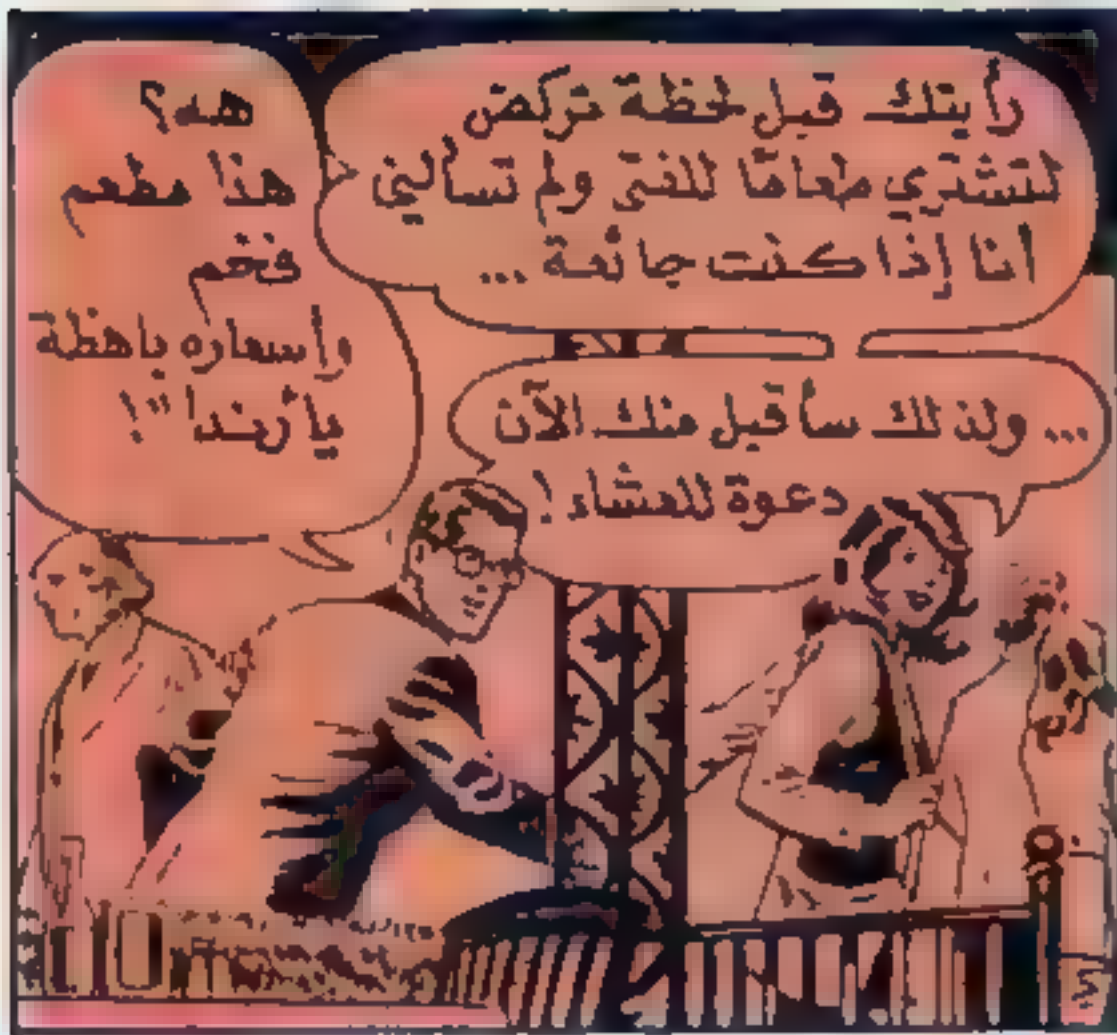 رأيتك قبل لحظة تركض
لتشتري طعامًا للفتى ولم تسألني
أنا إذا كنت جائعة ...
... ولذلك سأقبل منك الآن
دعوة للعشاء!
هه؟
هذا مطعم
فخم
وأسعاره باهظة
يا "رندا"!